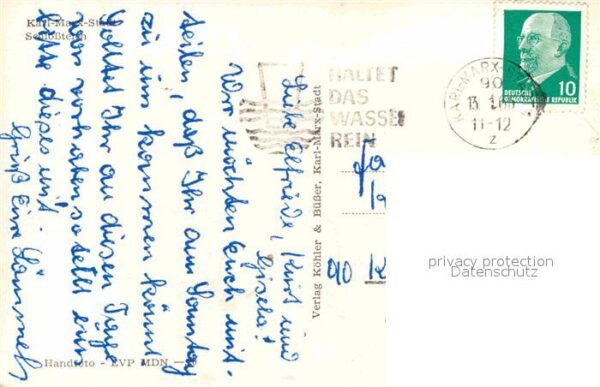 Karl-Marx-Stadt
Schloßteich
Liebe Elfriede, Kurt und
Gisela!
Wir möchten Euch mit-
teilen, daß Ihr am Sonntag
zu uns kommen könnt
Solltet Ihr an diesen Tage
was vorhaben so teilt uns
bitte dieses mit.
Gruß Eure
Handfoto - EVP MDN
Verlag Köhler & Büßer, Karl-Marx-Stadt
HALTET
DAS
WASSER
REIN
KARL-MARX-
90
13.
11-12
z
DEUTSCHE
DEMOKRATISCHE REPUBLIK
10
90 K
privacy protection
Datenschutz